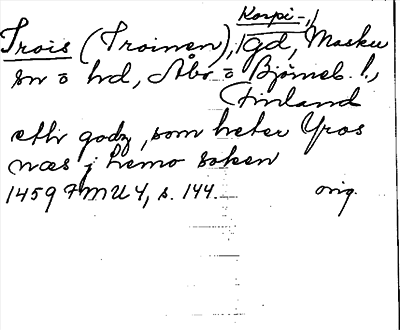 Korpi-,
Trois (Troinen), gd, Masku
sn o hd, Åbo o Björneb. l.,
Finland
eth godz, som heter Yros
næs j hemo soken
1459 FMU 4, s. 144. orig.